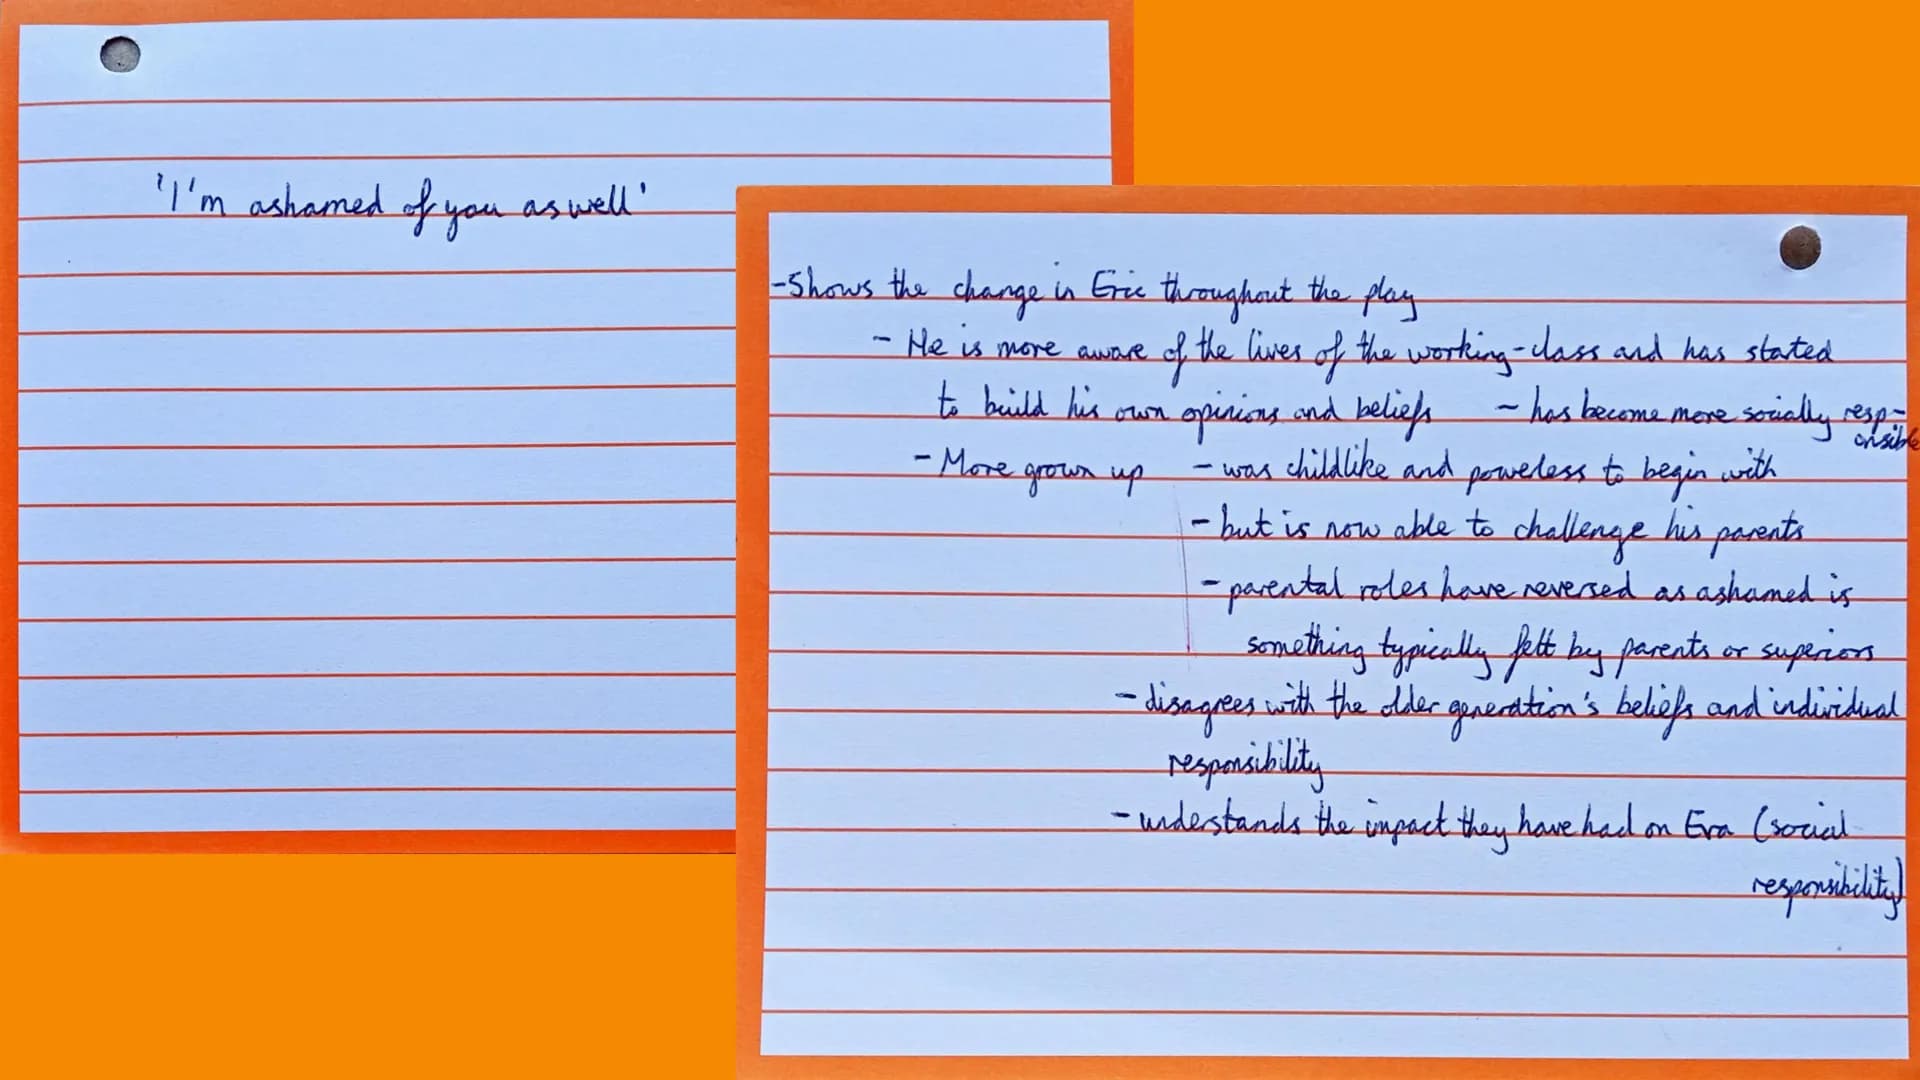 'I'm ashamed of you as well'
- Shows the change in Eric throughout the play
- He is more aware of the lives of the working-class and has stated
to build his own opinions and beliefs - has become more socially resp-
onsible
- More grown up - was childlike and powerless to begin with
- but is now able to challenge his parents
- parental roles have reversed as ashamed is
something typically felt by parents or superiors
- disagrees with the older generation's beliefs and individual
responsibility
- understands the impact they have had on Eva (social
responsibility)